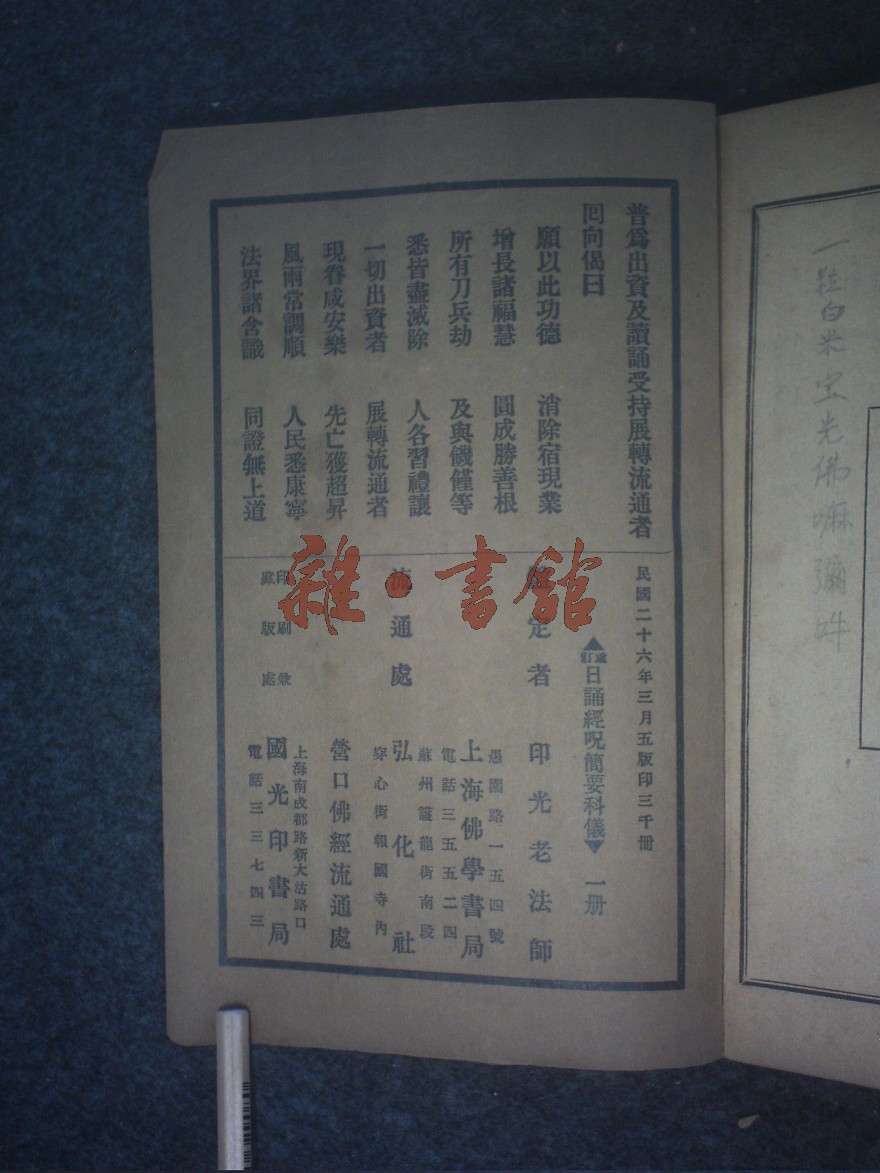 普爲出資及讀誦受持展轉流通者
回向偈曰
願以此功德　消除宿現業
增長諸福慧　圓成勝善根
所有刀兵劫　及與饑饉等
悉皆盡滅除　人各習禮讓
一切出資者　展轉流通者
現眷咸安樂　先亡獲超昇
風雨常調順　人民悉康寧
法界諸含識　同證無上道
民國二十六年三月五版印三千冊
▲重訂日誦經呪簡要科儀▼　一册
定者　印光老法師
流通處
愚園路一五四號
上海佛學書局
電話三五五二四
蘇州護龍街南段
弘化社
穿心街報國寺內
營口佛經流通處
印刷兼
版處
上海南成都路新大沽路口
國光印書局
電話三三七四三
雜·書館
一粒白米
佛嘛彌吽